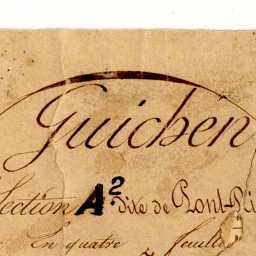 Guichen
Section A² dite de Pont-Ré
En quatre feuilles